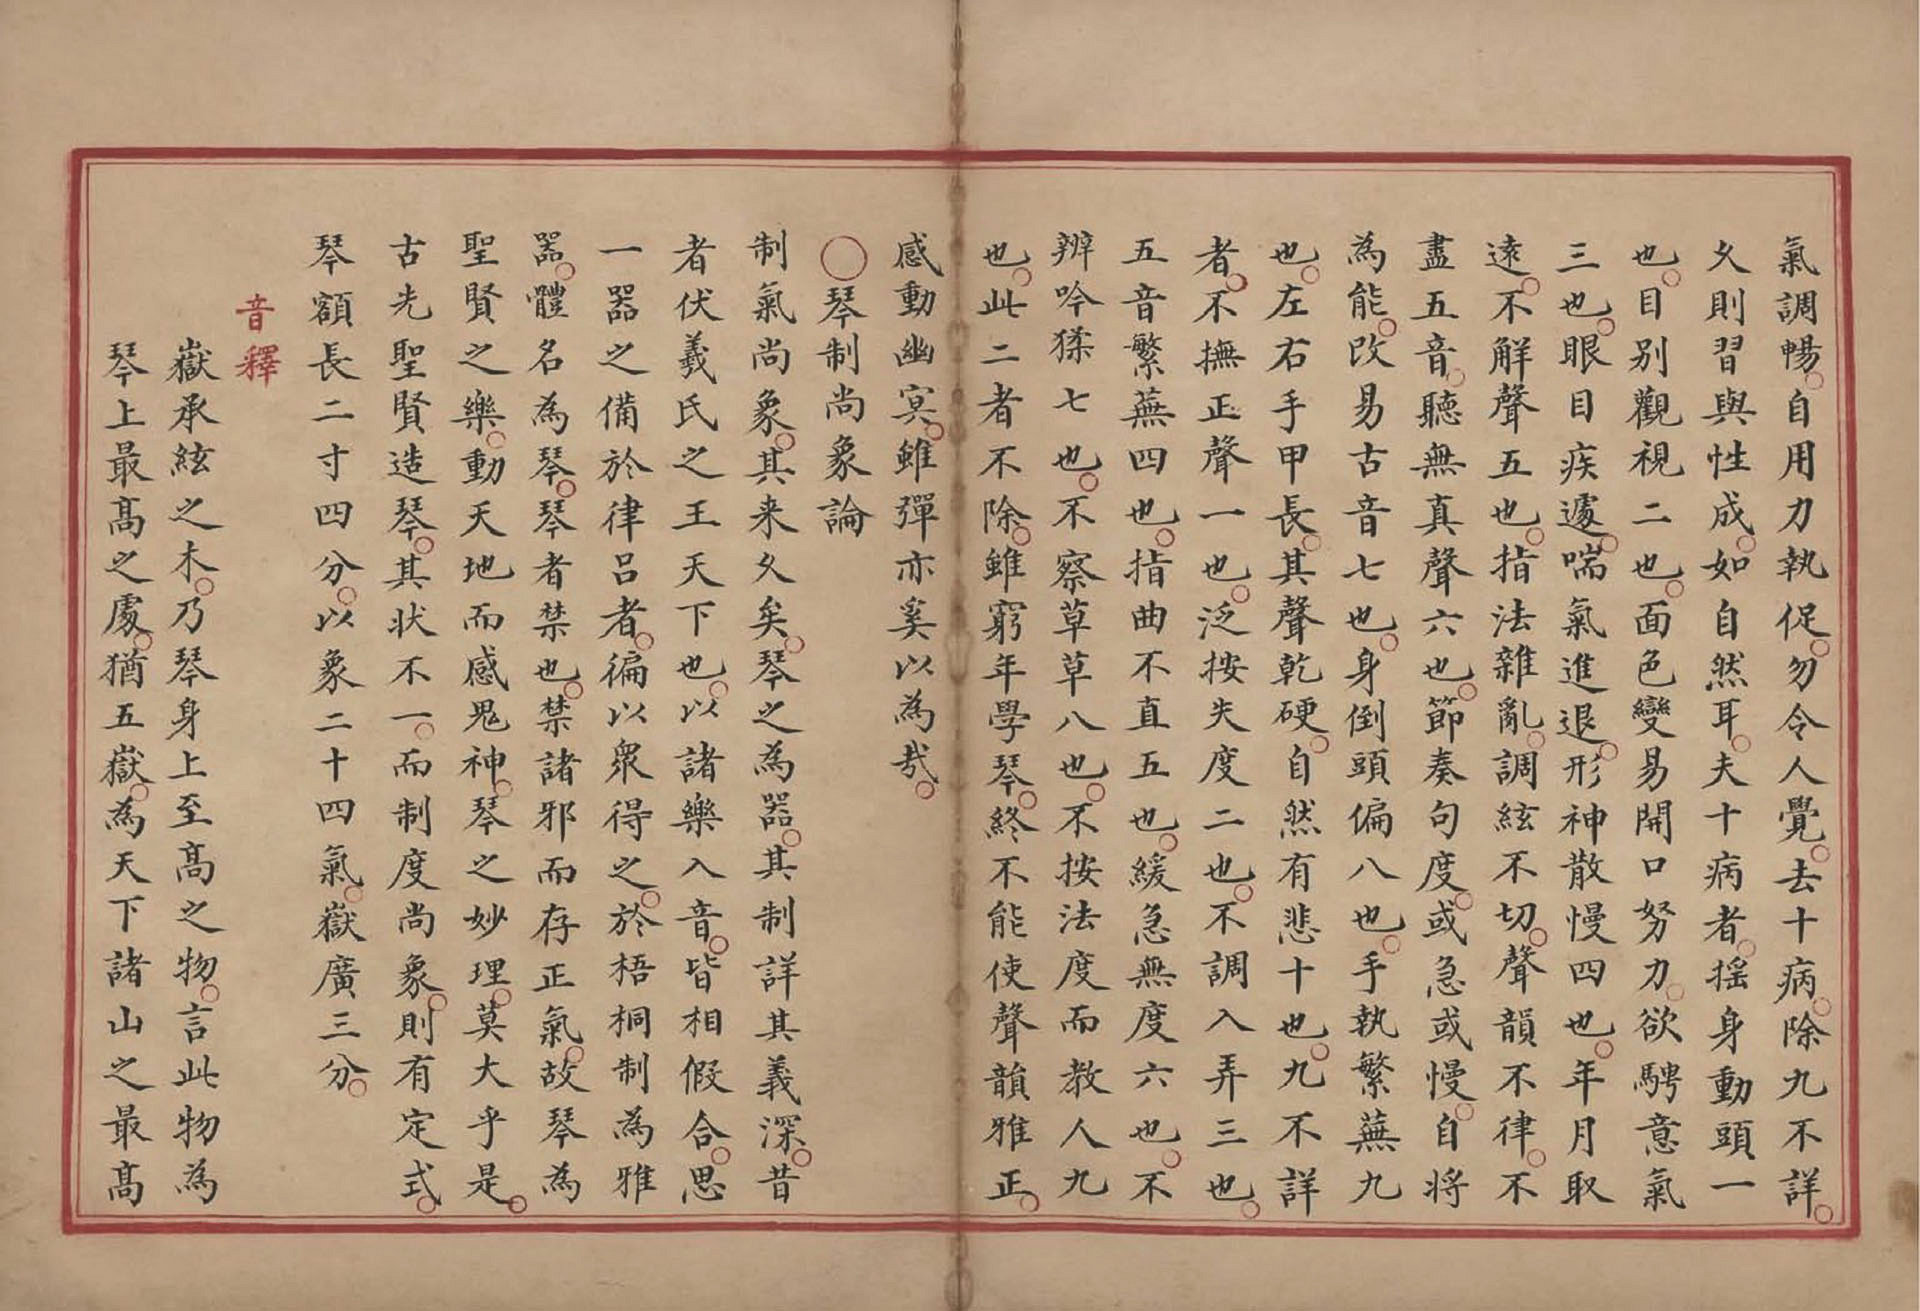 氣調暢。自用力執促。勿令人覺。去十病。除九不詳。
久則習與性成。如自然耳。夫十病者。搖身動頭一
也。目別觀視二也。面色變易開口努力。欲騁意氣
三也。眼目疾遽。喘氣進退。形神散慢四也。年月取
遠。不解聲五也。指法雜亂。調絃不切。聲韻不律。不
盡五音。聽無真聲六也。節奏句度。或急或慢。自將
為能。改易古音七也。身倒頭偏八也。手執繁蕪九
也。左右手甲長。其聲乾硬。自然有悲十也。九不詳
者。不撫正聲一也。泛按失度二也。不調入弄三也。
五音繁蕪四也。指曲不直五也。緩急無度六也。不
辨吟猱七也。不察草草八也。不按法度而教人九
也。此二者不除。雖窮年學琴。終不能使聲韻雅正。
感動幽冥。雖彈亦奚以為哉。
○琴制尚象論
制氣尚象。其来久矣。琴之為器。其制詳其義深。昔
者伏羲氏之王天下也。以諸樂入音。皆相假合。思
一器之備於律呂者。徧以衆得之。於梧桐制為雅
器。體名為琴。琴者禁也。禁諸邪而存正氣。故琴為
聖賢之樂。動天地而感鬼神。琴之妙理。莫大乎是。
古先聖賢造琴。其状不一。而制度尚象。則有定式。
琴額長二寸四分。以象二十四氣。嶽廣三分。
音釋
嶽承絃之木。乃琴身上至髙之物。言此物為
琴上最髙之處。猶五嶽。為天下諸山之最髙